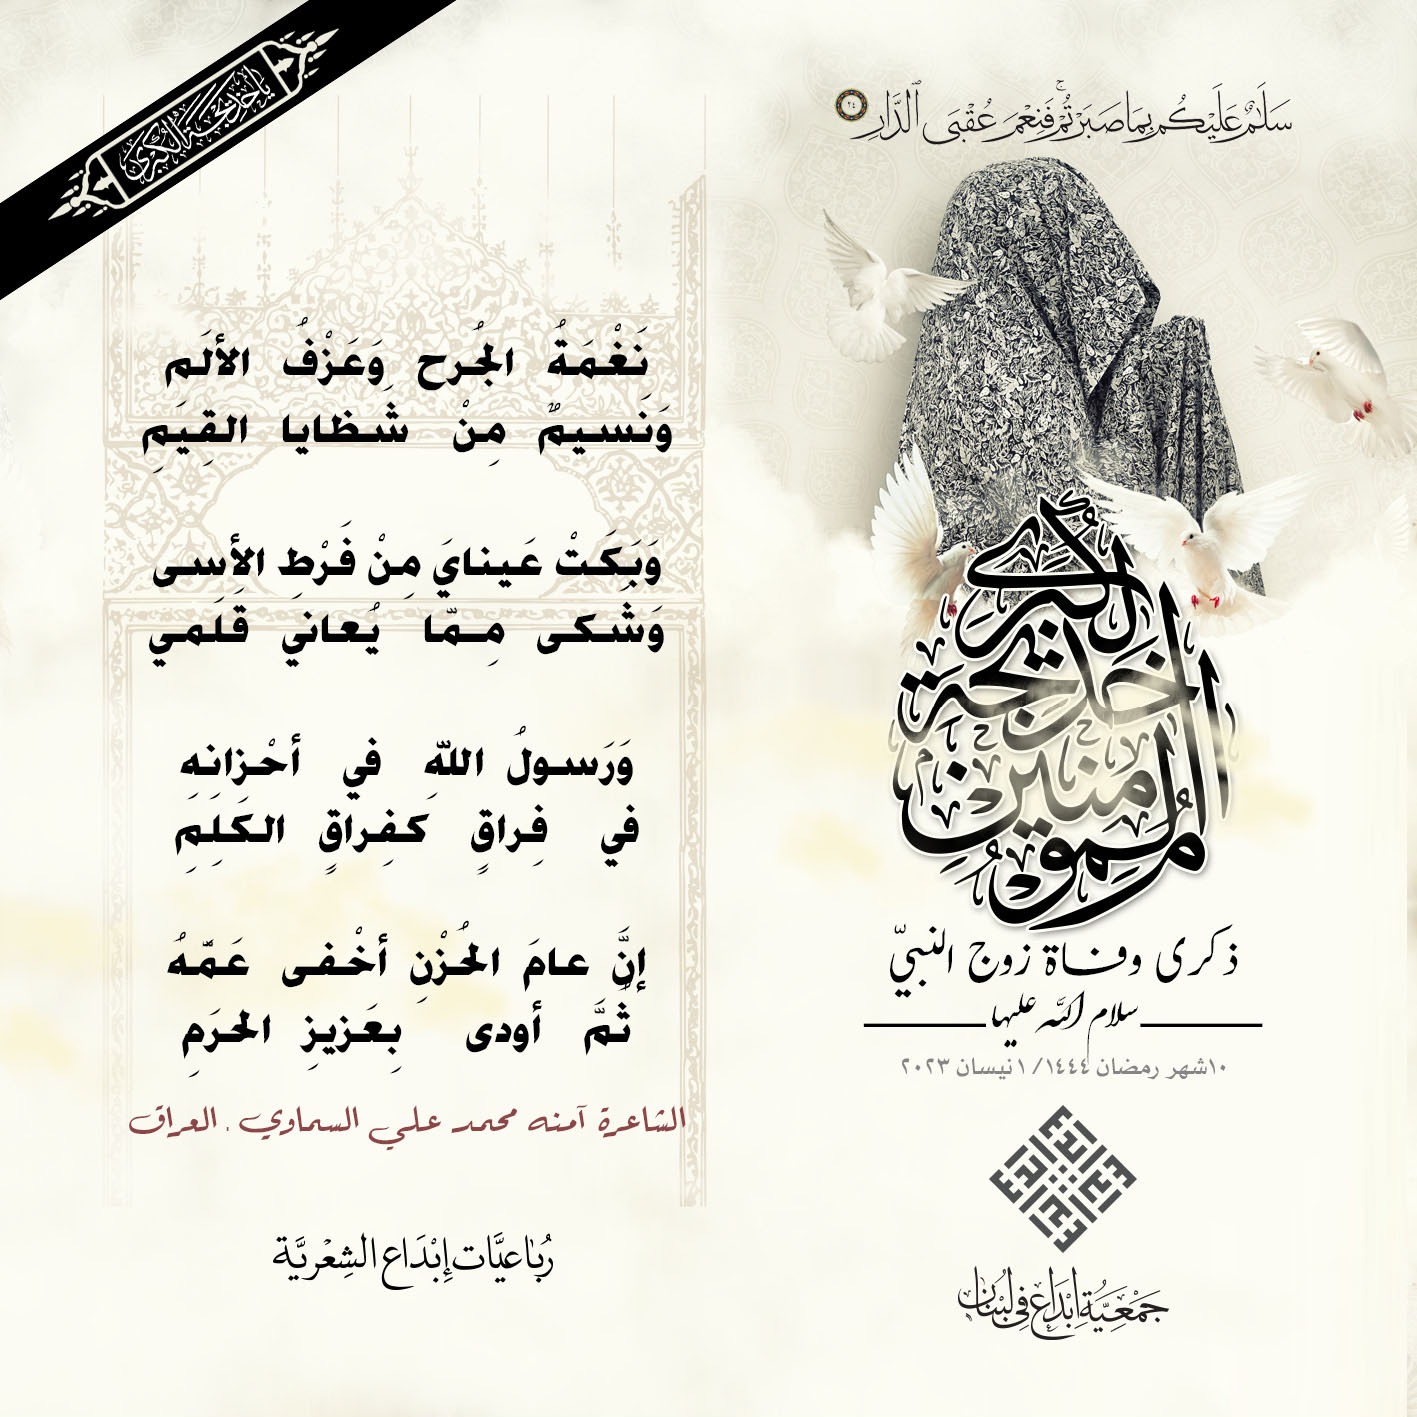 سَلَٰمٌ عَلَيْكُم بِمَا صَبَرْتُمْ ۚ فَنِعْمَ عُقْبَى ٱلدَّارِ ٢٤
يا خديجة الكبرى
نَغْمَةُ الجُرحِ وَعَزْفُ الألَمِ
وَنَسيمٌ مِنْ شَظايا القِيَمِ
وَبَكَتْ عَينايَ مِنْ فَرْطِ الأسِى
وَشَكى مِمّا يُعاني قَلَمي
وَرَسولُ اللّهِ في أحْزانِهِ
في فِراقٍ كَفِراقٍ الكَلِمِ
إنَّ عامَ الحُزْنِ أخْفى عَمَّهُ
ثُمَّ أودى بِعَزيزِ الحرَمِ
الشاعرة آمنه محمد علي السماوي . العراق
رُبَاعِيَّات إِبْدَاع الشِعْرِيَّة
أم المؤمنين خديجة الكبرى
ذكرى وفاة زوج النبيّ
سلام الله عليها
١٠شهر رمضان ١٤٤٤/ ١نيسان ٢٠٢٣
جَمْعِيَّةُ إِبْدَاع فِي لُبْنَان